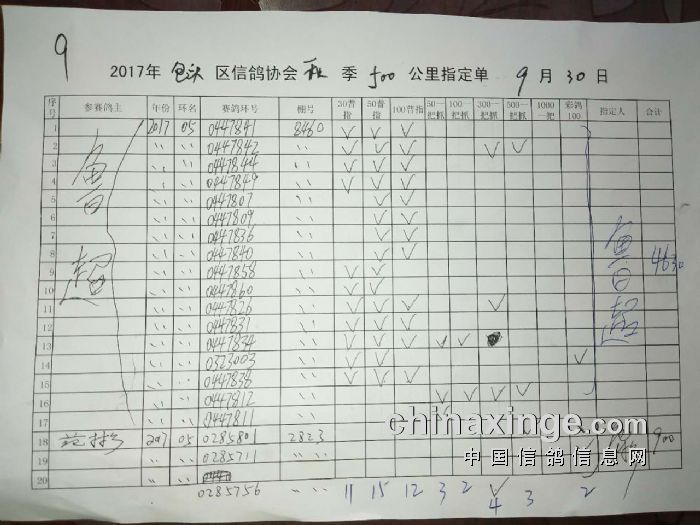 9
2017年 包头 区信鸽协会 秋 季 500 公里指定单 9月30日
序号 参赛鸽主 年份 环名 赛鸽环号 棚号 30普指 50普指 100普指 50一把抓 100一把抓 300一把抓 500一把抓 1000一把 彩鸽100 指定人 合计
1 鲁超 2017 05 0447841 8460 √ √ √ 鲁超 4630
2 〃 〃 0447842 〃 √ √ √ √ √
3 〃 〃 0447844 〃 √ √ √
4 〃 〃 0447849 〃 √ √ √
5 〃 〃 0447807 〃 √ √
6 〃 〃 0447809 〃 √ √
7 〃 〃 0447836 〃 √ √
8 〃 〃 0447840 〃 √ √
9 〃 〃 0447858 〃 √ √
10 〃 〃 0447860 〃 √ √
11 〃 〃 0447826 〃 √ √ √ √
12 〃 〃 0447831 〃 √ √ √
13 〃 〃 0447834 〃 √ √ √ √ √
14 〃 〃 0323003 〃 √ √ √
15 〃 〃 0447838 〃 √ √ √
16 〃 〃 0447812 〃 √ √ √ √
17 〃 〃 0447811 〃
18 2017 05 0285801 2823 900
19 0285711 〃 〃
20
0285756 〃 〃 11 15 12 3 2 √ 4 3 2
chinaxinge.com
中国信鸽信息网